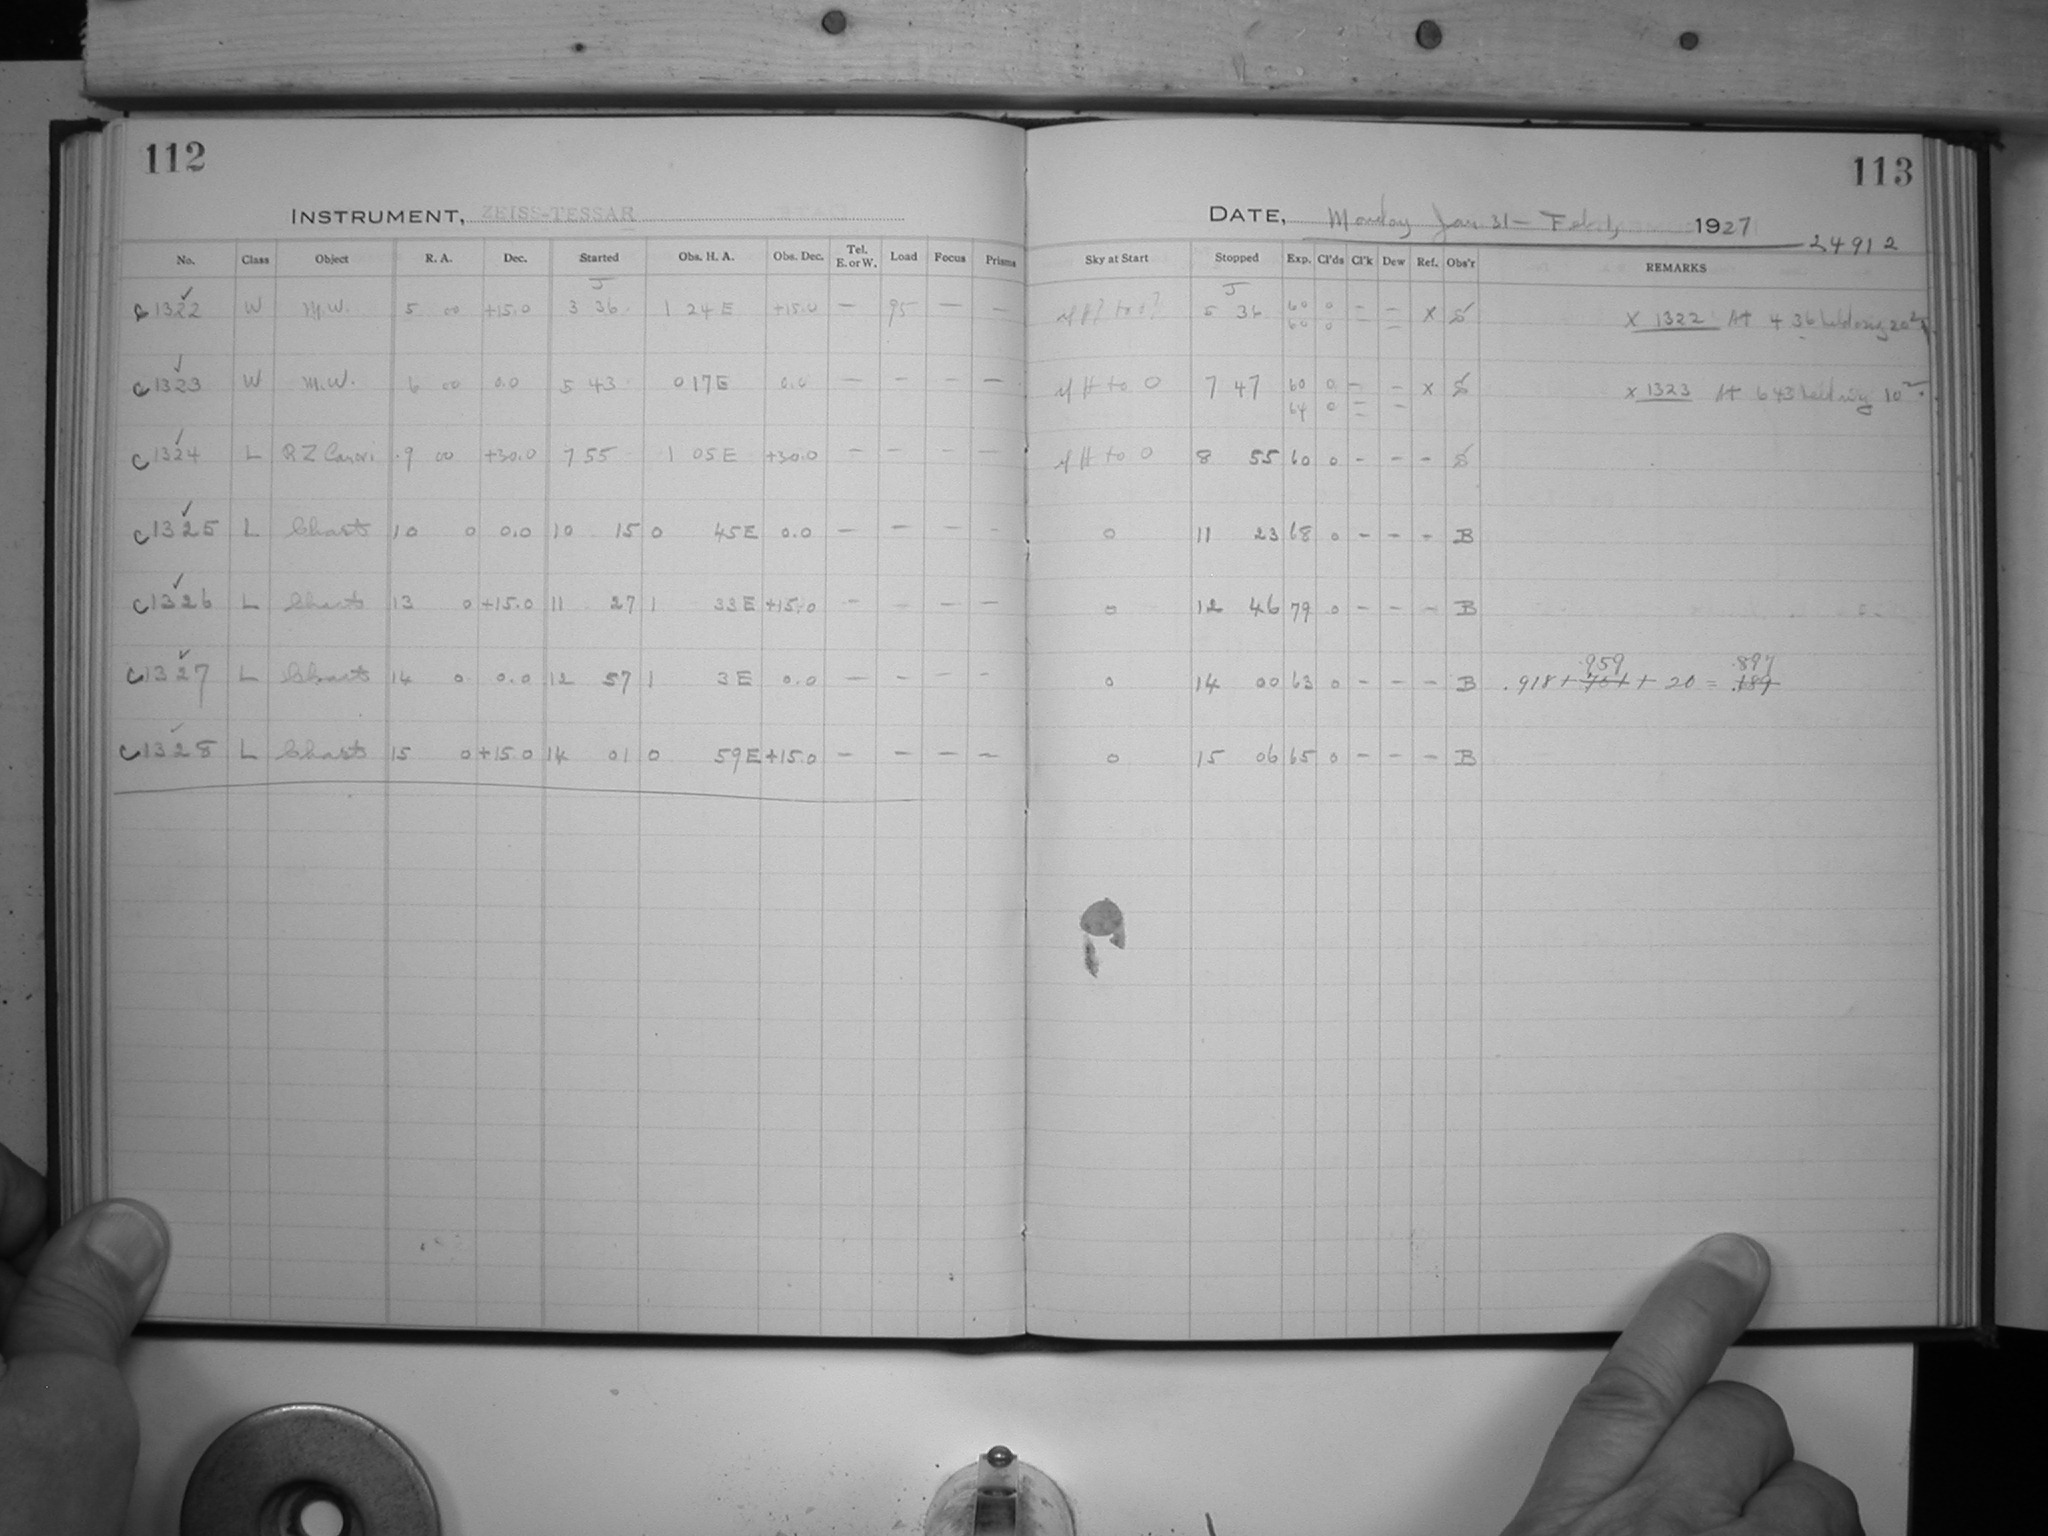 112
113
INSTRUMENT, ZEISS-TESSAR
DATE, Monday Jan 31 - Feb 1, 1927
24912
No. Class Object R. A. Dec. Started Obs. H. A. Obs. Dec. Tel. E. or W. Load Focus Prisms Sky at Start Stopped Exp. Cl'ds Cl'k Dew Ref. Obs'r REMARKS
J J
C 1322 W M.W. 5 00 +15.0 3 36 1 24 E +15.0 — 95 — — 5 36 60 0 — — X S X 1322 At 4 36
60 0 — —
C 1323 W M.W. 6 00 0.0 5 43 0 17 E 0.0 — — — — H to 0 7 47 60 0 — — X S X 1323 At 6 43
64 0 — —
C 1324 L R Z Cancri 9 00 +30.0 7 55 1 05 E +30.0 — — — — H to 0 8 55 60 0 - - - S
C 1325 L Charts 10 0 0.0 10 15 0 45 E 0.0 — — — - 0 11 23 68 0 - - - B
C 1326 L Charts 13 0 +15.0 11 27 1 33 E +15.0 — — — — 0 12 46 79 0 - - - B
C 1327 L Charts 14 0 0.0 12 57 1 3 E 0.0 — — — - 0 14 00 63 0 - - - B .918 + .959 + 20 = .897
C 1328 L Charts 15 0 +15.0 14 01 0 59 E +15.0 — — — — 0 15 06 65 0 - - - B